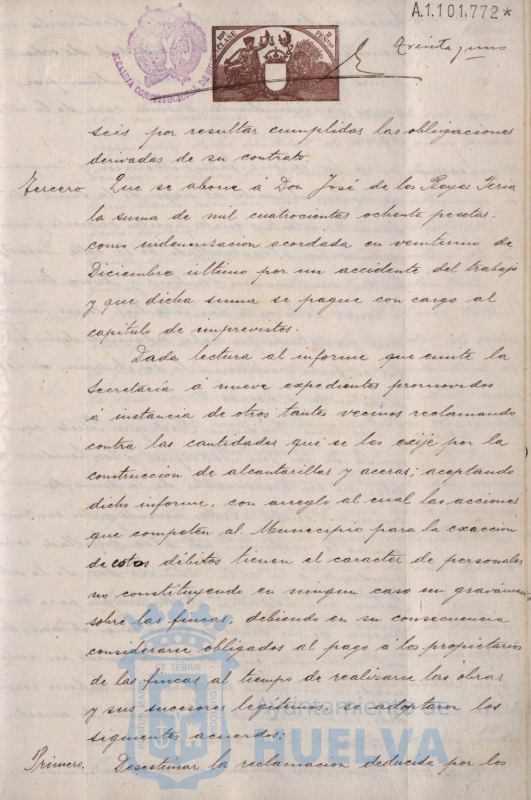 A.1.101.772*
10ª CLASE 2 PESETAS
ALCALDIA CONSTITUCIONAL DE
Treinta y uno
seis por resultar cumplidas las obligaciones
derivadas de su contrato.
Tercero. Que se abone á Don José de los Reyes Feria
la suma de mil cuatrocientas ochenta pesetas,
como indemnizacion acordada en veintiuno de
Diciembre último por un accidente del trabajo
y que dicha suma se pague con cargo al
capítulo de imprevistos.
Dada lectura al informe que emite la
Secretaría á nueve expedientes promovidos
á instancia de otros tantos vecinos reclamando
contra las cantidades que se les exije por la
construccion de alcantarillas y aceras; aceptando
dicho informe, con arreglo al cual las acciones
que competen al Municipio para la exaccion
de estos débitos tienen el caracter de personales
no constituyendo en ningun caso un gravámen
sobre las fincas, debiendo en su consecuencia
considerarse obligados al pago á los propietarios
de las fincas al tiempo de realizarse las obras
y sus sucesores legítimos, se adoptaron los
siguientes acuerdos:
Primero. Desestimar la reclamacion deducida por los
Ayuntamiento de
HUELVA